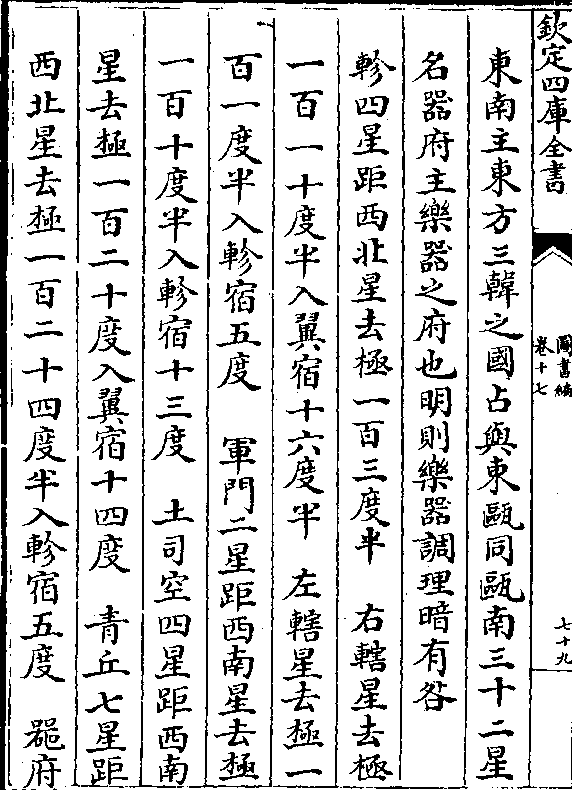 欽定四庫全書
圖書編
卷十七
七十九
東南主東方三韓之國占與東甌同甌南三十二星
名器府主樂器之府也明則樂器調理暗有咎
軫四星距西北星去極一百三度半　右轄星去極
一百一十度半入翼宿十六度半　左轄星去極一
百一度半入軫宿五度　軍門二星距西南星去極
一百十度半入軫宿十三度　土司空四星距西南
星去極一百二十度入翼宿十四度　青丘七星距
西北星去極一百二十四度半入軫宿五度　器府